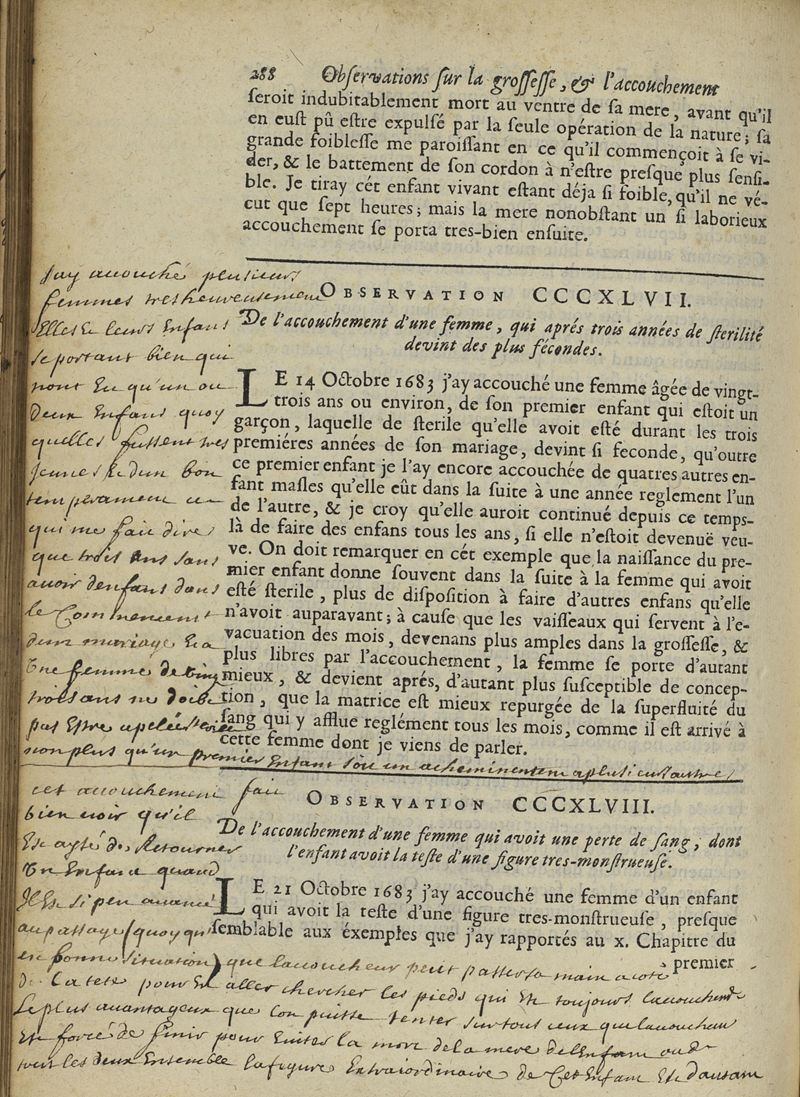 288 Obſervations ſur la groſſeſſe, & l'accouchement
ſeroit indubitablement mort au ventre de ſa mere, avant qu'il
en euſt pû eſtre expulſé par la ſeule opération de la nature; ſa
grande foibleſſe me paroiſſant en ce qu'il commençoit à ſe vi-
der, & le battement de ſon cordon à n'eſtre preſque plus ſenſi-
ble. Je tiray cét enfant vivant eſtant déja ſi foible, qu'il ne vé-
cut que ſept heures; mais la mere nonobſtant un ſi laborieux
accouchement ſe porta tres-bien enſuite.
OBSERVATION CCCXLVII.
De l'accouchement d'une femme, qui aprés trois années de ſterilité
devint des plus fécondes.
LE 14 Octobre 1683 j'ay accouché une femme âgée de vingt-
trois ans ou environ, de ſon premier enfant qui eſtoit un
garçon, laquelle de ſterile qu'elle avoit eſté durant les trois
premiéres années de ſon mariage, devint ſi feconde, qu'outre
ce premier enfant je l'ay encore accouchée de quatres autres en-
fant maſles qu'elle eût dans la ſuite à une année reglement l'un
de l'autre, & je croy qu'elle auroit continué depuis ce temps-
là de faire des enfans tous les ans, ſi elle n'eſtoit devenuë veu-
ve. On doit remarquer en cét exemple que la naiſſance du pre-
mier enfant donne ſouvent dans la ſuite à la femme qui avoit
eſté ſterile, plus de diſpoſition à faire d'autres enfans qu'elle
n'avoit auparavant; à cauſe que les vaiſſeaux qui ſervent à l'e-
vacuation des mois, devenans plus amples dans la groſſeſſe, &
plus libres par l'accouchement, la femme ſe porte d'autant
mieux, & devient aprés, d'autant plus ſuſceptible de concep-
tion, que la matrice eſt mieux repurgée de la ſuperfluité du
ſang qui y afflue reglément tous les mois, comme il eſt arrivé à
cette femme dont je viens de parler.
Jay accouché plusieurs
femmes tresheureusement
Elles & leurs Enfans
se portant bien qui
nont Eu qu'un ou
Deux Enfans quoy
quelles fussent tres
jeunes & dun bon
temperament ce
qui me fait dire
que trois ans sans
avoir denfans dans
le Commencement
dun mariage
Une femme de vingt
trois ans ne doit
pas Estre apelée sterile
non plus qu'un premier Enfant soit un acheminement a plusieurs autres
OBSERVATION CCCXLVIII.
De l'accouchement d'une femme qui avoit une perte de ſang, dont
l'enfant avoit la teſte d'une figure tres-monſtrueuſe.
LE 21 Octobre 1683 j'ay accouché une femme d'un enfant
qui avoit la teſte d'une figure tres-monſtrueuſe, preſque
ſemblable aux éxemples que j'ay rapportés au x. Chapitre du
premier
cet accouchement fait
bien voir qu'il
Est aysé de Retourner
Un Enfant quand
Il Est si peu avancé
au passage quoy qu'
en bonne situation que laccoucheur peut passer sa main a coté
De La tete pour En aller chercher les pieds qui Est toujours Laccouchement
Le plus avantageux que Lon puisse tenter sur tout ceux que laccoucheur
Est forcé de finir pour Eviter la mort de la mere de lEnfant ou de
tous les deux Ensemble la figure Extraiordinaire de Cet Enfant Est dautant